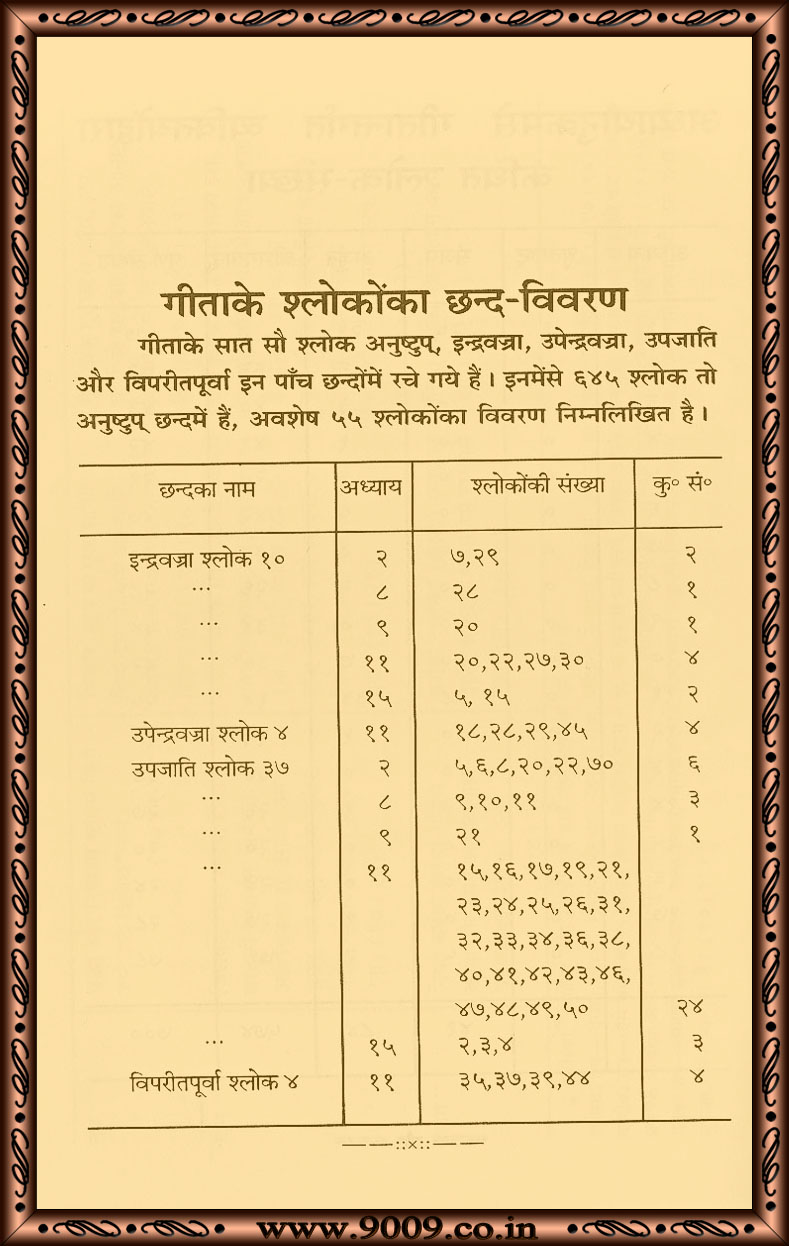 गीताके श्लोकोंका छन्द-विवरण
गीताके सात सौ श्लोक अनुष्टुप्, इन्द्रवज्रा, उपेन्द्रवज्रा, उपजाति
और विपरीतपूर्वा इन पाँच छन्दोंमें रचे गये हैं। इनमेंसे ६४५ श्लोक तो
अनुष्टुप् छन्दमें हैं, अवशेष ५५ श्लोकोंका विवरण निम्नलिखित है।
छन्दका नाम अध्याय श्लोकोंकी संख्या कु० सं०
इन्द्रवज्रा श्लोक १० २ ७,२९ २
... ८ २८ १
... ९ २० १
... ११ २०,२२,२७,३० ४
... १५ ५, १५ २
उपेन्द्रवज्रा श्लोक ४ ११ १८,२८,२९,४५ ४
उपजाति श्लोक ३७ २ ५,६,८,२०,२२,७० ६
... ८ ९,१०,११ ३
... ९ २१ १
... ११ १५,१६,१७,१९,२१,
२३,२४,२५,२६,३१,
३२,३३,३४,३६,३८,
४०,४१,४२,४३,४६,
४७,४८,४९,५० २४
... १५ २,३,४ ३
विपरीतपूर्वा श्लोक ४ ११ ३५,३७,३९,४४ ४
——::×::——
www.9009.co.in